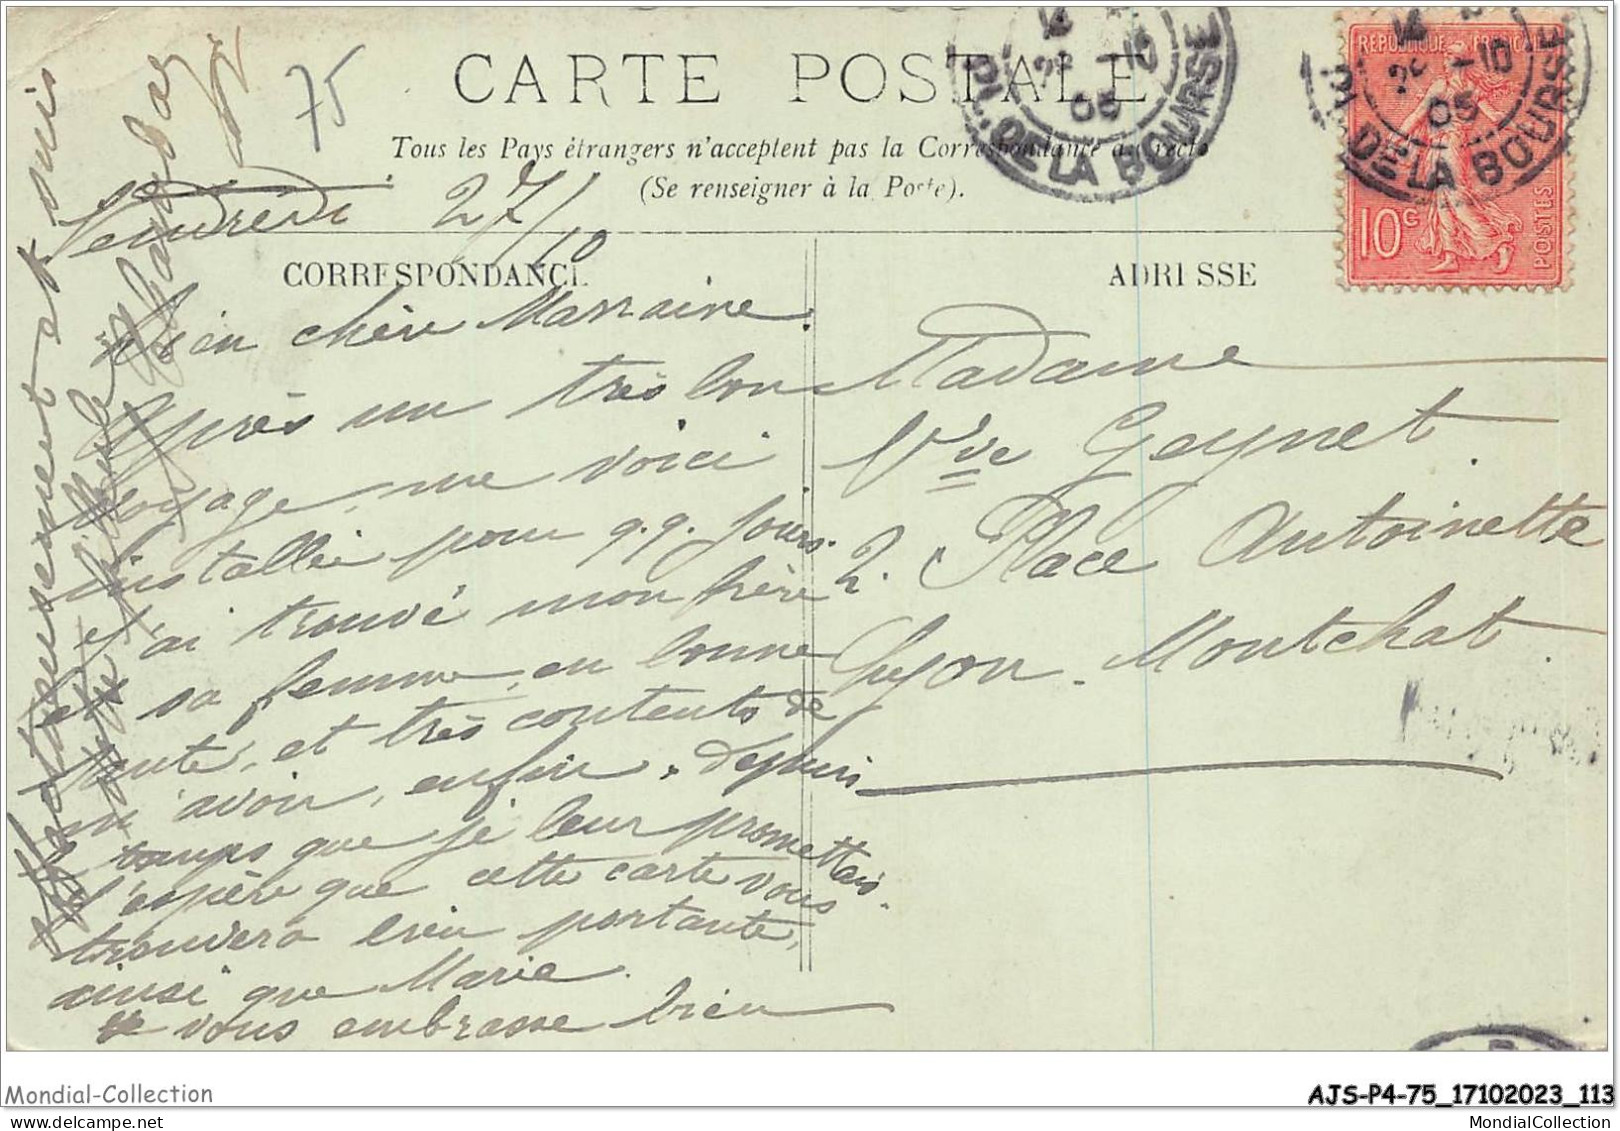 75
CARTE POSTALE
Tous les Pays étrangers n'acceptent pas la Correspondance au recto
(Se renseigner à la Poste).
Vendredi 27/10
CORRESPONDANCE
Bien chère Marraine.
Après un très bon
voyage, me voici
installée pour q.q. jours.
J'ai trouvé mon frère
et sa femme, en bonne
santé, et très contents de
m'avoir, enfin. depuis
le temps que je leur promettais.
J'espère que cette carte vous
trouvera bien portante,
ainsi que Marie.
Je vous embrasse bien
affectueusement et suis
votre filleule
ADRESSE
Madame
Vve Geynet.
2. Place Antoinette
Lyon. Montchat.
PL. DE LA BOURSE
-10
05
REPUBLIQUE FRANÇAISE
10c
POSTES
PL. DE LA BOURSE
-10
05
Mondial-Collection
AJS-P4-75_17102023_113
MondialCollection